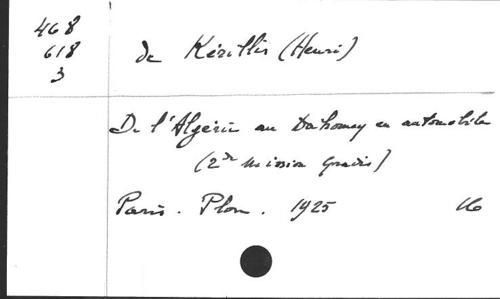 468
618
3
de Kérillis (Henri)
De l'Algérie au Dahomey en automobile
(2de Mission Gradis)
Paris. Plon. 1925 16